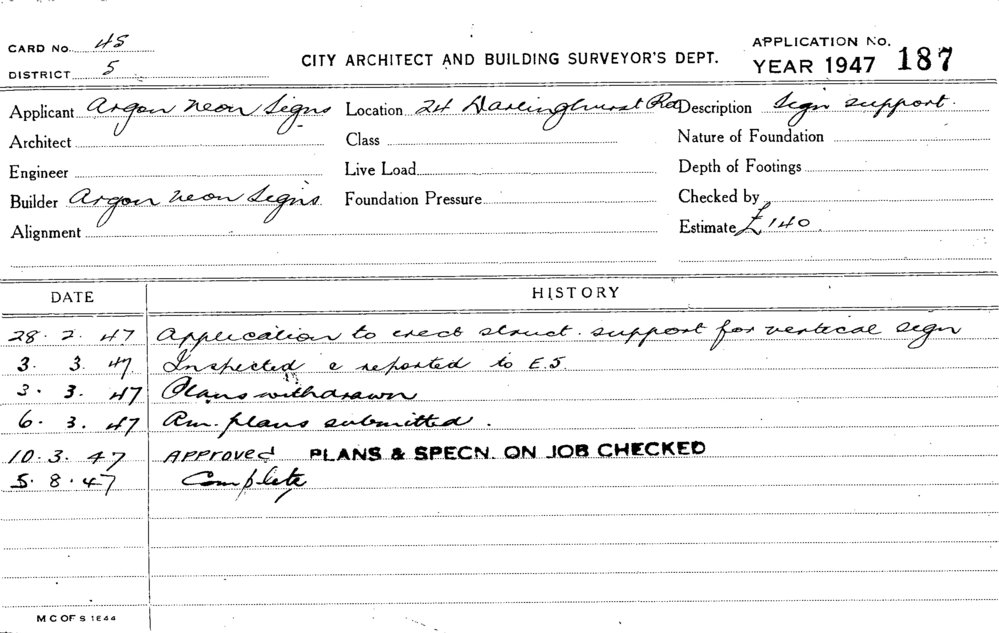 CARD No. 45
DISTRICT 5
CITY ARCHITECT AND BUILDING SURVEYOR'S DEPT.
APPLICATION No. 187
YEAR 1947
Applicant Argon Neon Signs Location 24 Darlinghurst Rd Description Sign support.
Architect Class Nature of Foundation
Engineer Live Load Depth of Footings
Builder Argon Neon Signs Foundation Pressure Checked by
Alignment Estimate £140
DATE HISTORY
28. 2. 47 Application to erect struct. support for vertical sign
3. 3. 47. Inspected & reported to E.S.
3. 3. 47 Plans withdrawn
6. 3. 47 Am. plans submitted.
10. 3. 47 APPROVED PLANS & SPECN. ON JOB CHECKED
5. 8. 47 Complete
M C OF S 1E44